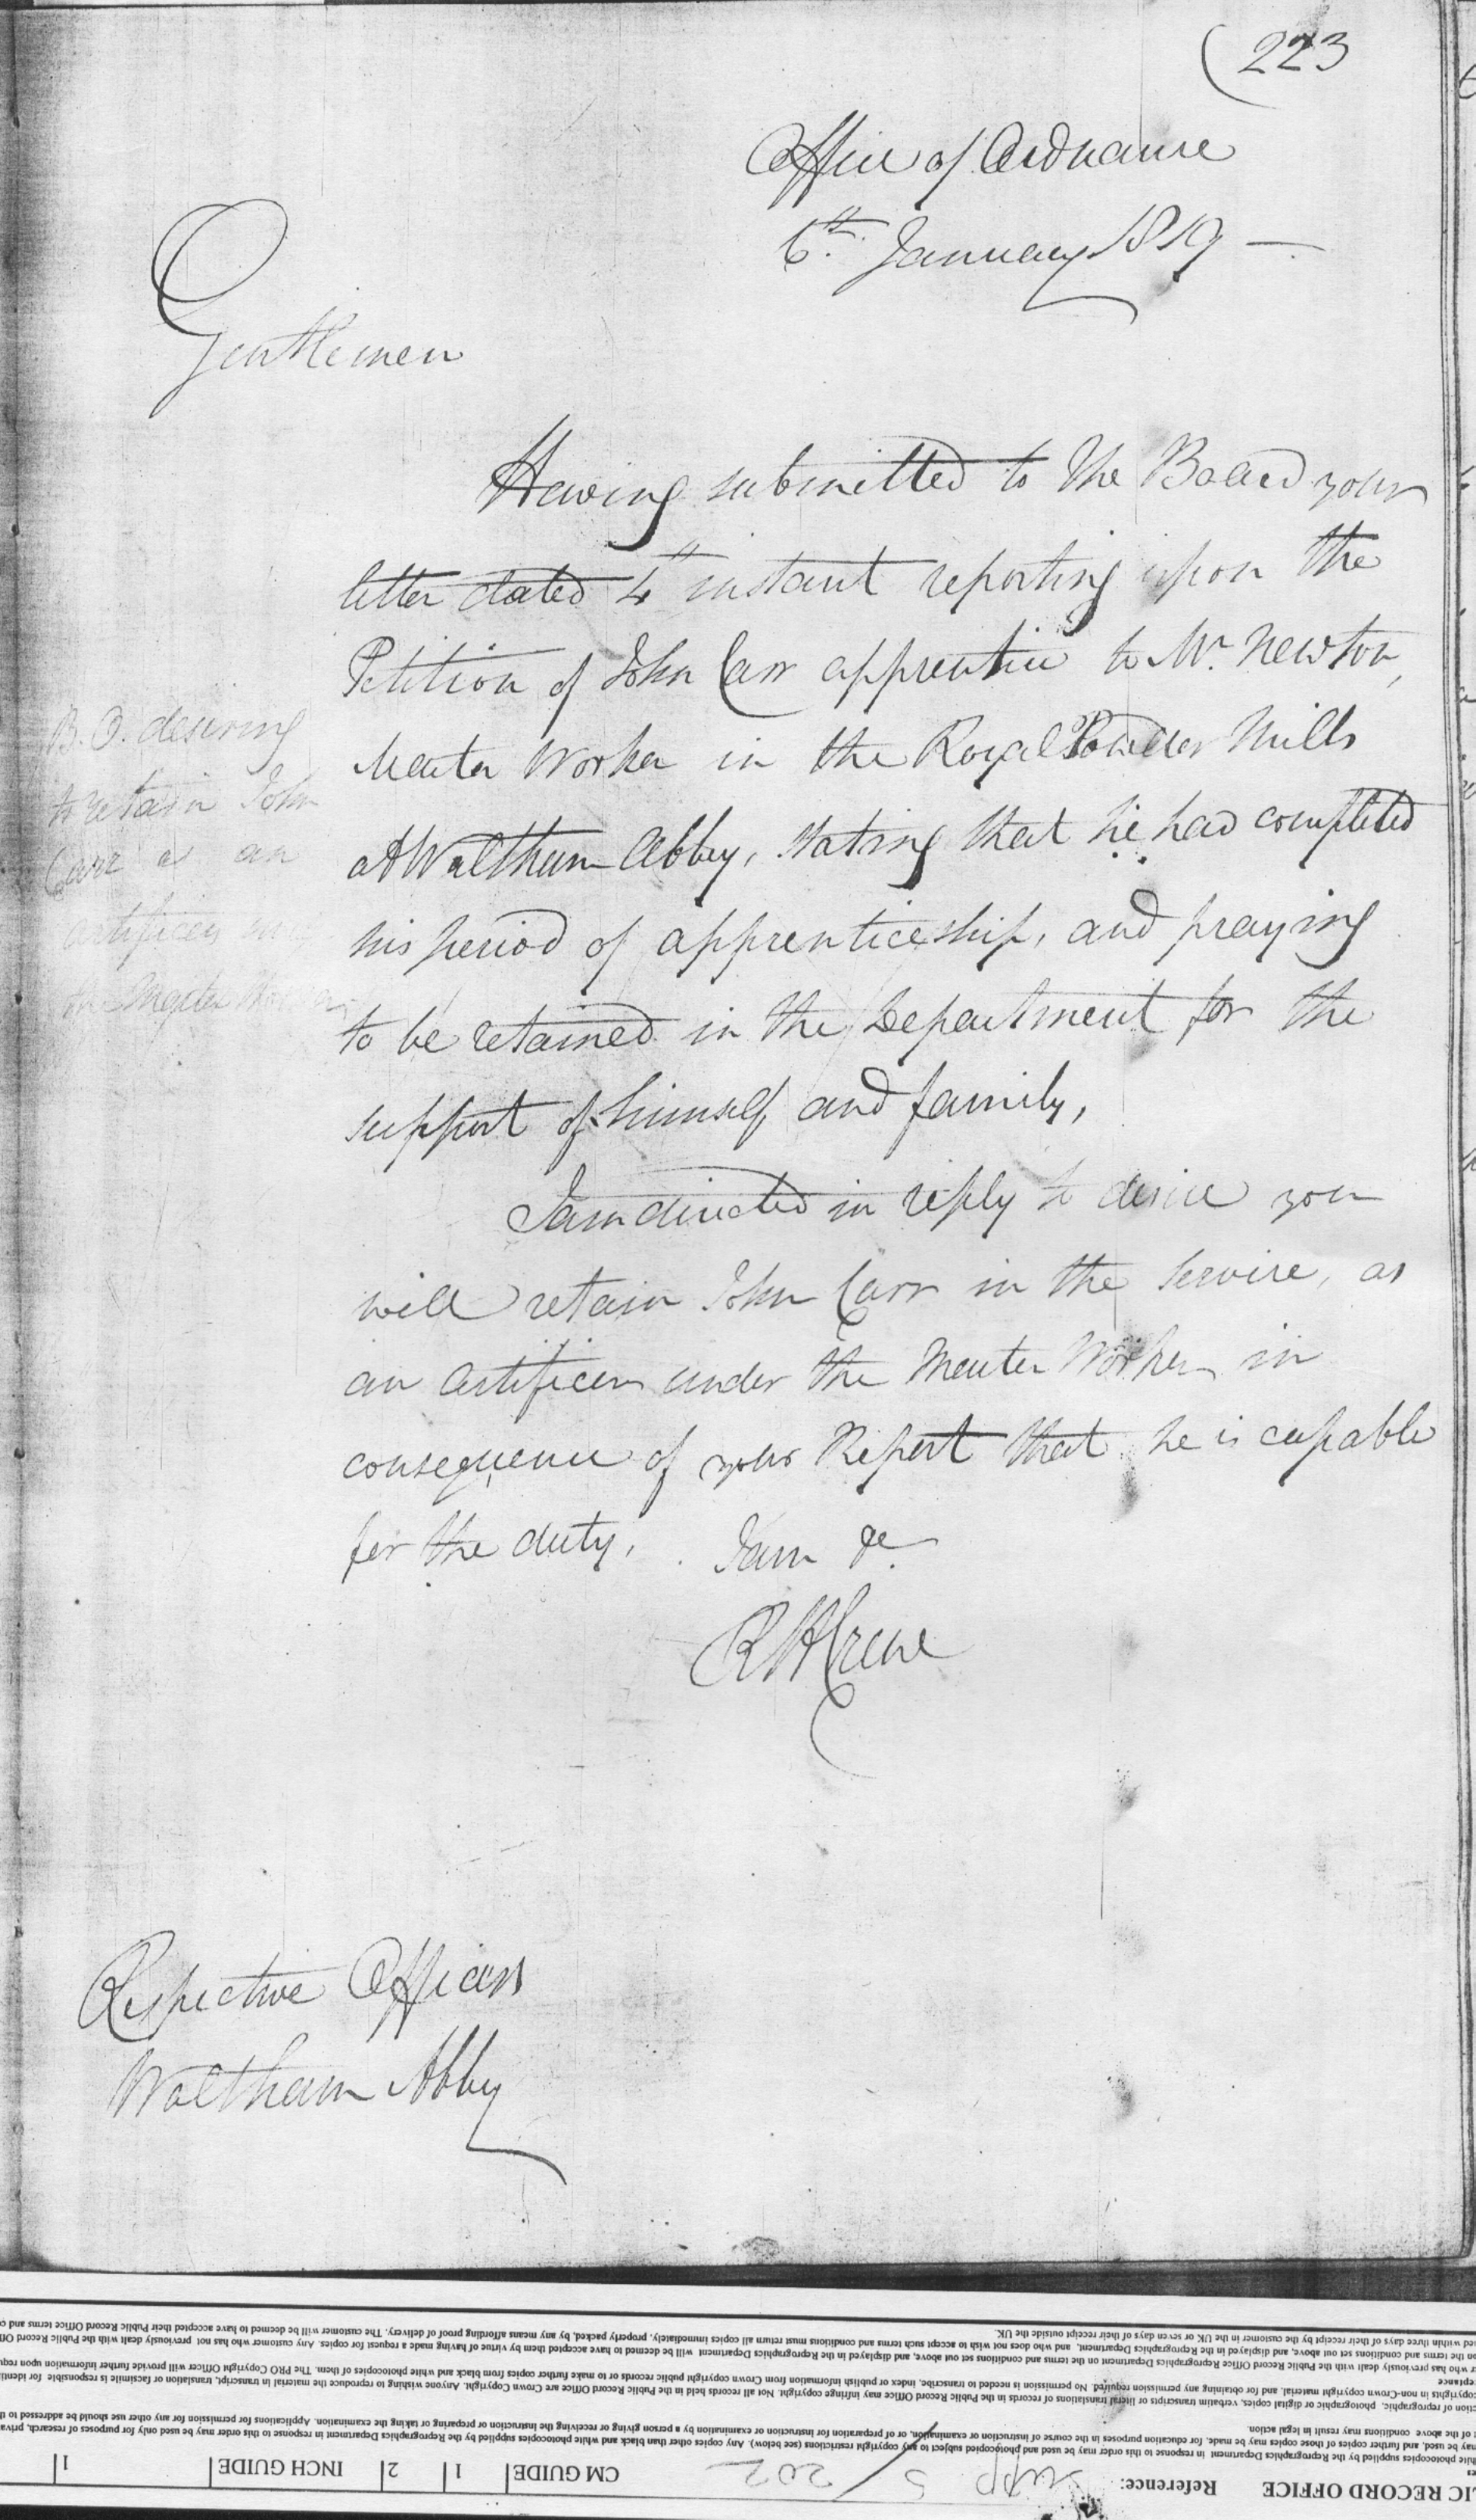 (223
Office of Ordnance
6th January 1819 —
Gentlemen
Having submitted to the Board your
letter dated 4th instant reporting upon the
Petition of John Carr apprentice to Mr. Newton,
Master Worker in the Royal Powder Mills
at Waltham Abbey, stating that he had completed
his period of apprenticeship, and praying
to be retained in the Department for the
support of himself and family,
I am directed in reply to desire you
will retain John Carr in the Service, as
an Artificer under the Master Worker in
consequence of your Report that he is capable
for the duty. I am &c
R H Crew
B.O. desiring
to retain John
Carr as an
artificer
Master Worker
Respective Officers
Waltham Abby
LIC RECORD OFFICE Reference: Supp 5/202 CM GUIDE 1 2 INCH GUIDE 1